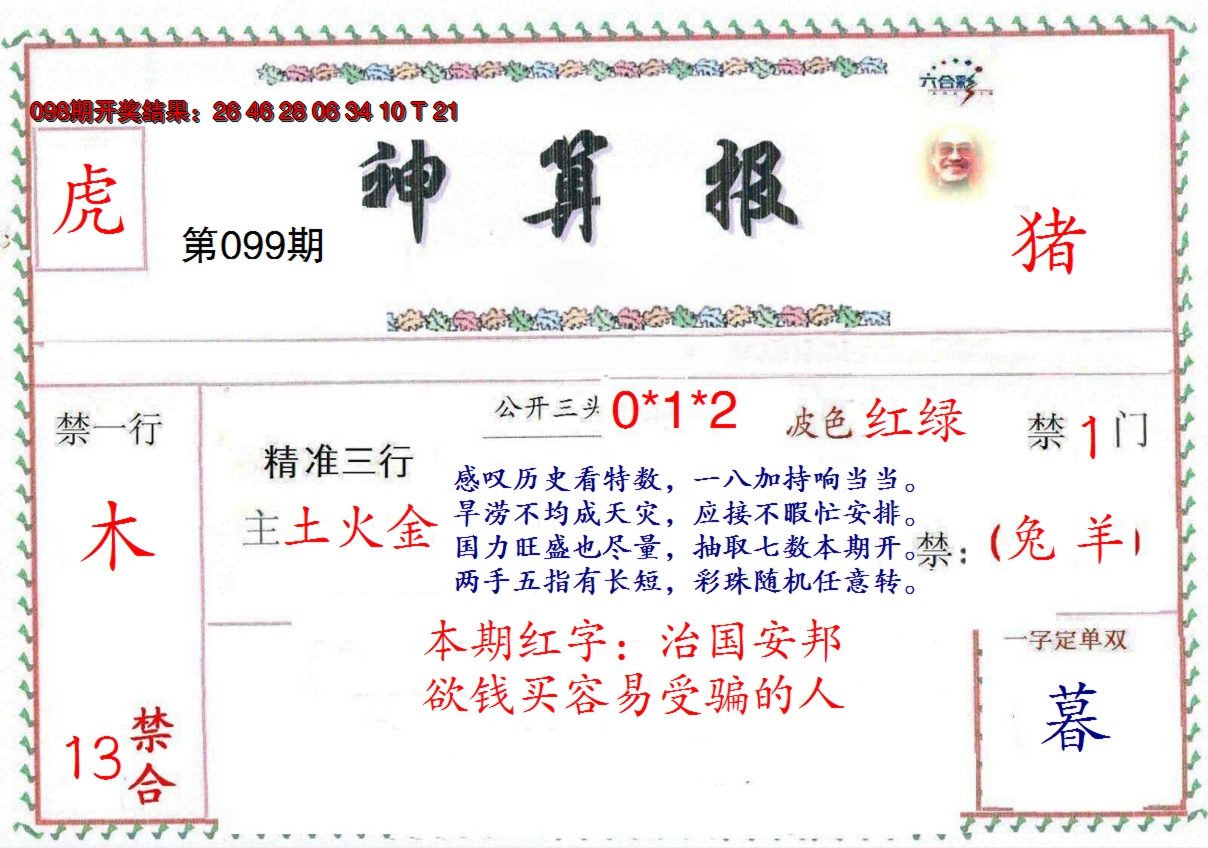 六合彩
098期开奖结果：26 46 28 06 34 10 T 21
神算报
虎
第099期
猪
禁一行
木
13
禁合
精准三行
主土火金
公开三头 0*1*2
波色 红绿
禁1门
感叹历史看特数，一八加持响当当。
旱涝不均成天灾，应接不暇忙安排。
国力旺盛也尽量，抽取七数本期开。
两手五指有长短，彩珠随机任意转。
禁：（兔 羊）
本期红字：治国安邦
欲钱买容易受骗的人
一字定单双
暮